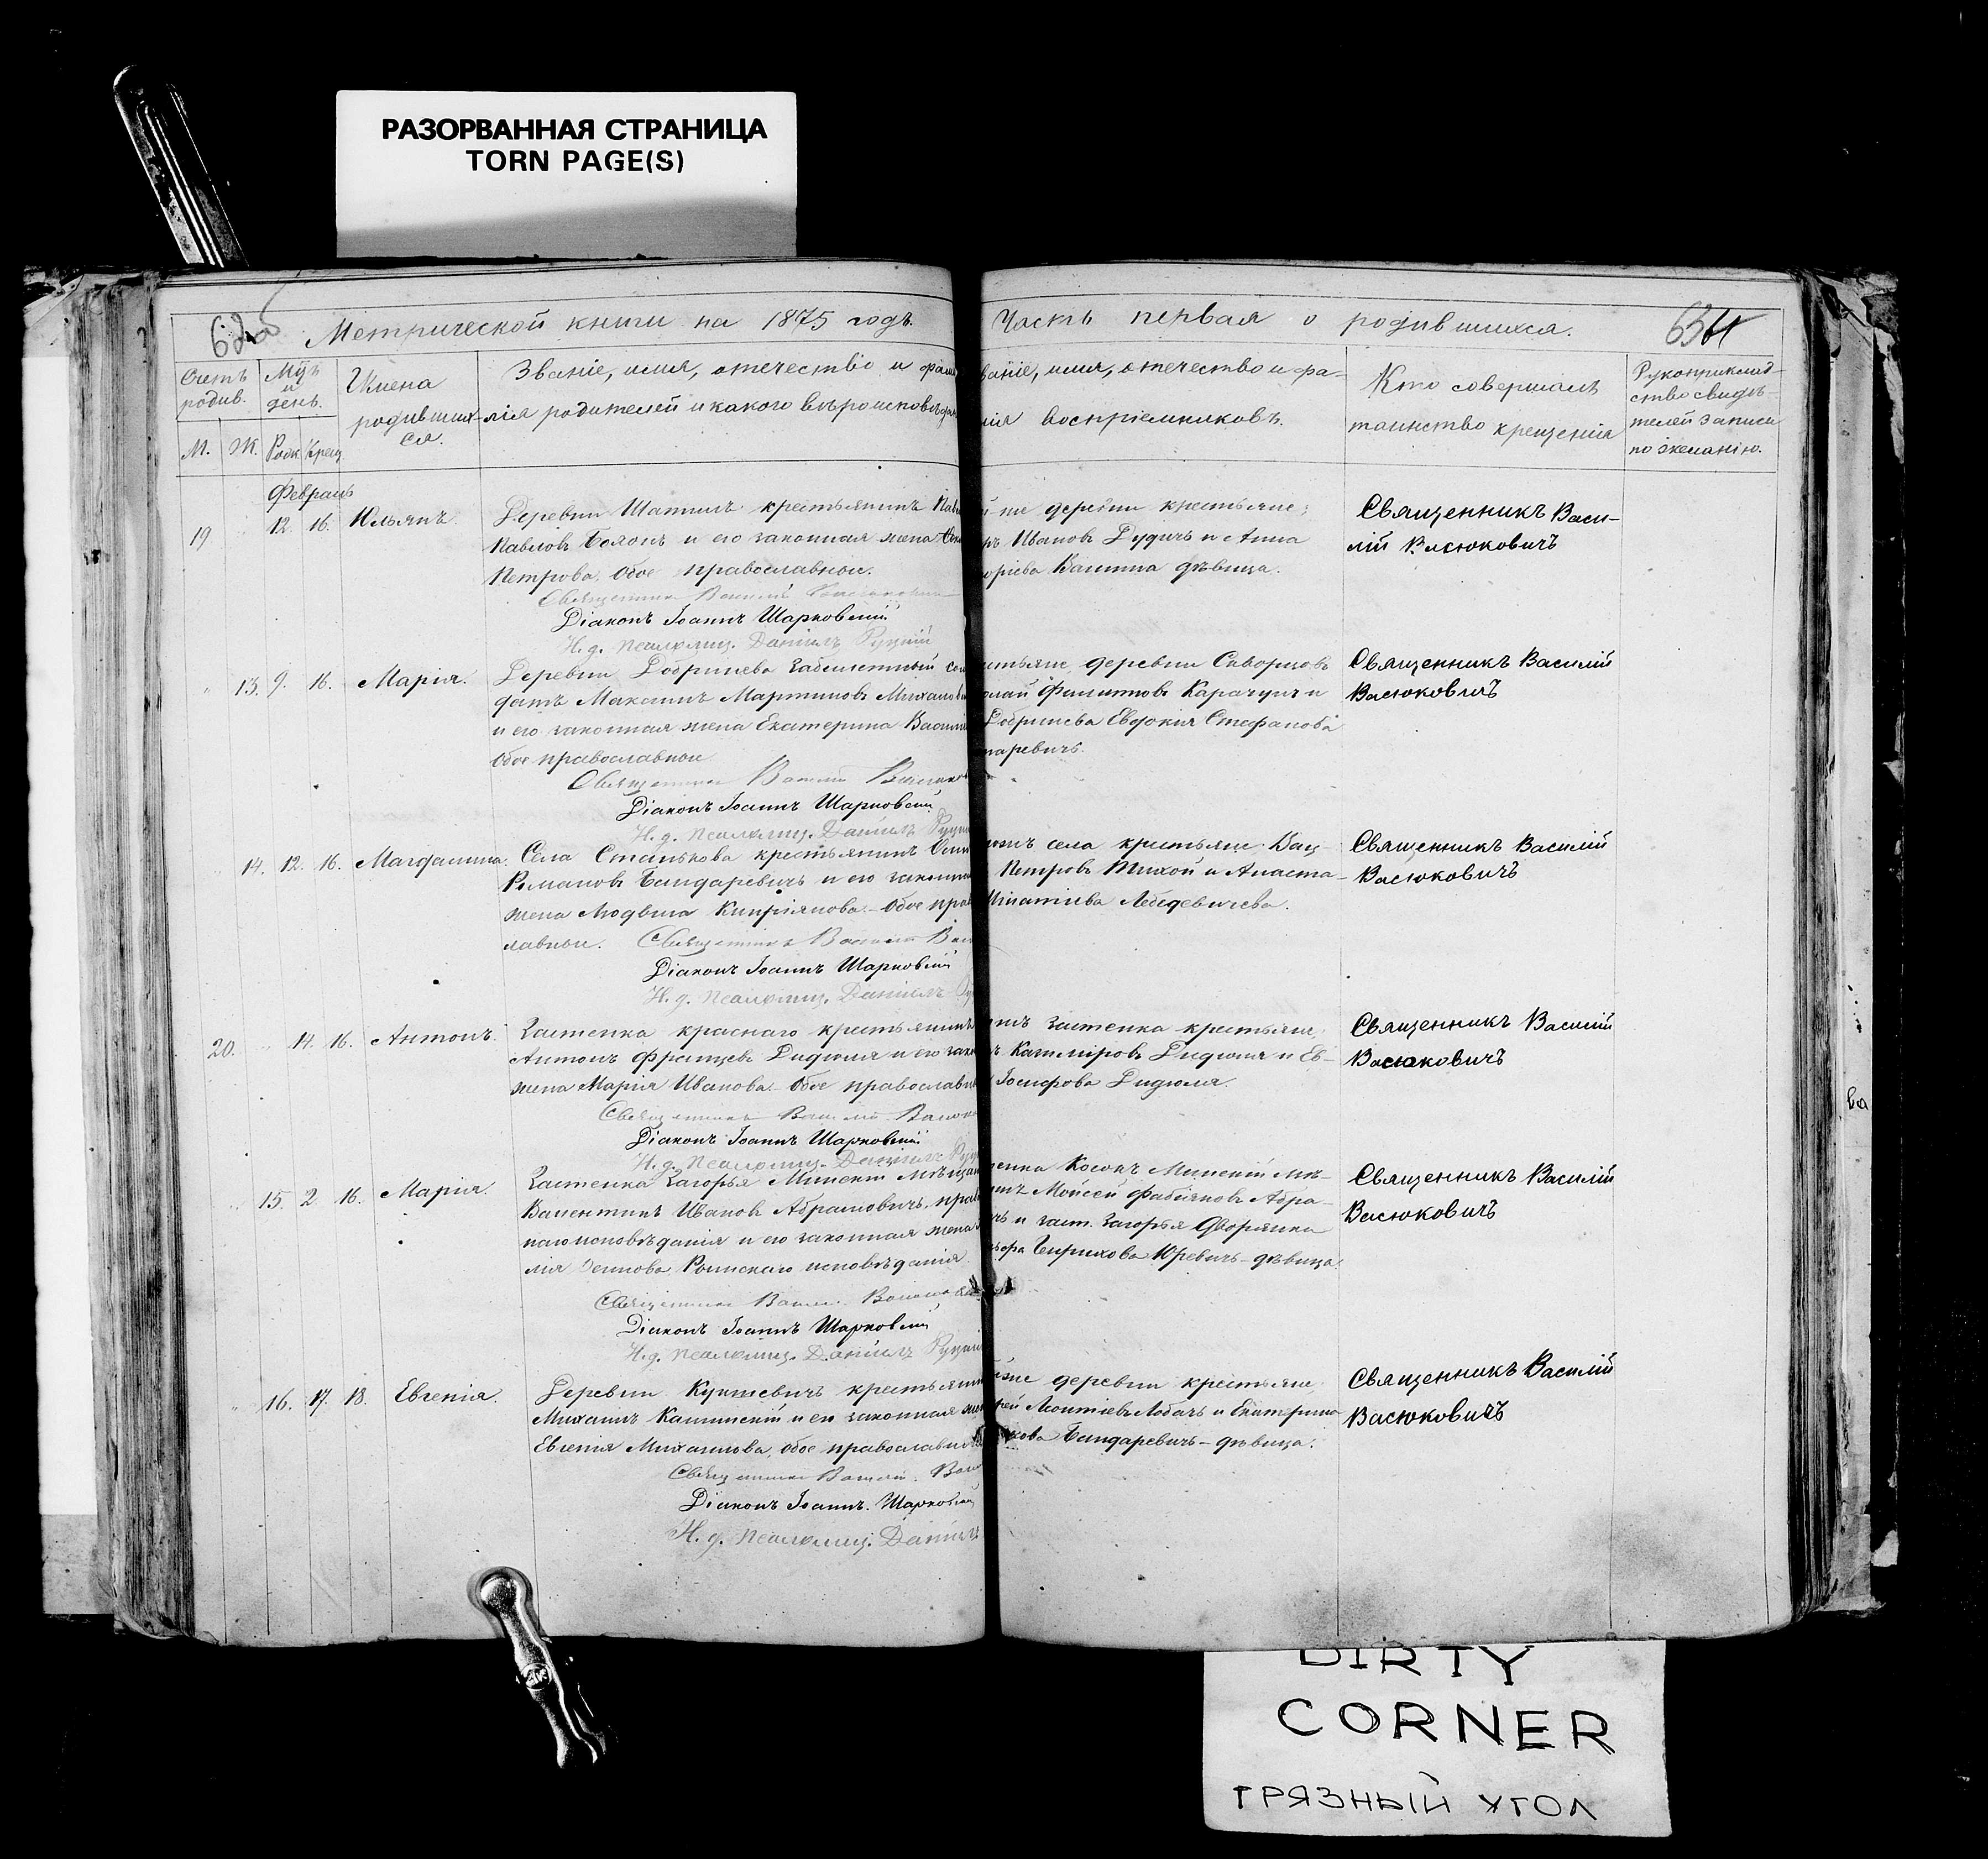 РАЗОРВАННАЯ СТРАНИЦА
TORN PAGE(S)
Метрической книги на 1875 годъ.
Часть первая о родившихся.
Счетъ родив.
М. Ж.
Мѣц и день.
Рожд Крещ
Имена
родивших-
ся.
Званіе, имя, отечество и фами
лія родителей и какого вѣроисповѣдан
ваніе, имя, отечество и фа-
лія воспріемниковъ.
Кто совершалъ
таинство крещенія
Рукоприклад-
ство свидѣ-
телей записи
по желанію.
Февраль
19 12. 16. Юльянъ.
Деревни крестьянинъ Павл
Павловъ и его законная жена
Петрова. Обое православные.
Священникъ Василій Васюковичъ
Діаконъ Іоаннъ Шарковскій
Н. д. псаломщ. Даніилъ Руцкій
й же деревни крестьяне;
Ивановъ Дудичъ и Анна
дѣвица.
Священникъ Васи-
лій Васюковичъ
13. 9. 16. Марія.
Деревни Добринева Забилетный сол
датъ Максимъ Мартиновъ
и его законная жена Екатерина Васильев
Обое православные
Священникъ Василій Васюков
Діаконъ Іоаннъ Шарковскій
Н. д. псаломщ. Даніилъ Руцкі
стьяне, деревни Скворцовъ
колай Филиповъ Карачунъ и
Добринева Евдокія Стефанова
наревичъ.
Священникъ Василій
Васюковичъ
14. 12. 16. Магдалина.
Села Станькова крестьянинъ Осип
Романовъ Бандаревичъ и его законная
жена Людвига Кипріянова. Обое прав
лавные. Священникъ Василій Вас
Діаконъ Іоаннъ Шарковскій
Н. д. псаломщ. Даніилъ Ру
села крестьяне
Петровъ Тихой и Анаста-
Игнатіева Лебедевичева.
Священникъ Василій
Васюковичъ
20. 14. 16. Антонъ.
Застенка краснаго крестьянинъ
Антонъ Францевъ Дидюля и его зако
жена Марія Иванова. Обое православн
Священникъ Василій Васюков
Діаконъ Іоаннъ Шарковскій
Н. д. псаломщ. Даніилъ Руц
застенка крестьяне,
Казиміровъ Дидюля и Ев-
Іосифова Дидюля.
Священникъ Василій
Васюковичъ
15. 2 16. Марія.
Застенка Загорья Минскій мѣщан
Валентинъ Ивановъ Абрамовичъ, прав
наго исповѣданія и его законная жена
лія Римскаго исповѣданія.
Священникъ Василій Васюков
Діаконъ Іоаннъ Шарковскій
Н. д. псаломщ. Даніилъ Руцкій
тенка Минскій мѣ-
Мойсей Фабіяновъ Абра-
и заст. Загорья Дворянка
Генрихова Юревичъ-дѣвица.
Священникъ Василій
Васюковичъ
16. 17. 18. Евгенія.
Деревни крестьянин
Михаилъ Калинскій и его законная жен
Евгенія Михаилова, обое православн
Священникъ Василій. Васю
Діаконъ Іоаннъ. Шарковскій
Н. д. псаломщ. Даніилъ
деревни крестьяне,
рей Леонтіевъ Лобачъ и Екатерина
кова Бандаревичъ-дѣвица.
Священникъ Василій
Васюковичъ
ва
DIRTY
CORNER
ГРЯЗНЫЙ УГОЛ